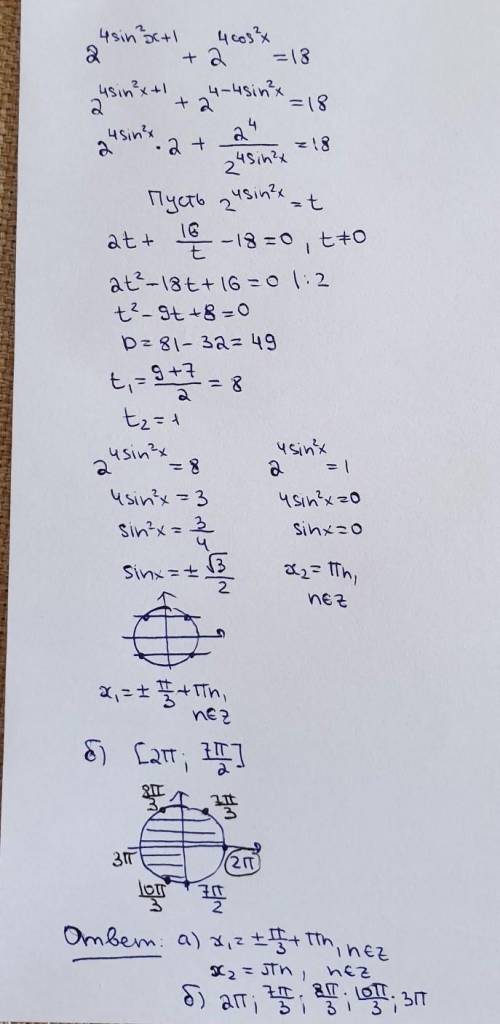 2^{4sin²x+1} + 2^{4cos²x} = 18
2^{4sin²x+1} + 2^{4-4sin²x} = 18
2^{4sin²x} · 2 + \frac{2^4}{2^{4sin²x}} = 18
Пусть 2^{4sin²x} = t
2t + \frac{16}{t} - 18 = 0, t ≠ 0
2t² - 18t + 16 = 0 |:2
t² - 9t + 8 = 0
D = 81 - 32 = 49
t₁ = \frac{9+7}{2} = 8
t₂ = 1
2^{4sin²x} = 8 2^{4sin²x} = 1
4sin²x = 3 4sin²x = 0
sin²x = \frac{3}{4} sinx = 0
sinx = ± \frac{√3}{2} x₂ = πn,
n∈z
x₁ = ± \frac{π}{3} + πn,
n∈z
б) [2π; \frac{7π}{2}]
\frac{8π}{3} \frac{7π}{3}
3π 2π
\frac{10π}{3} \frac{7π}{2}
Ответ: а) x₁ = ± \frac{π}{3} + πn, n∈z
x₂ = πn, n∈z
б) 2π; \frac{7π}{3}; \frac{8π}{3}; \frac{10π}{3}; 3π